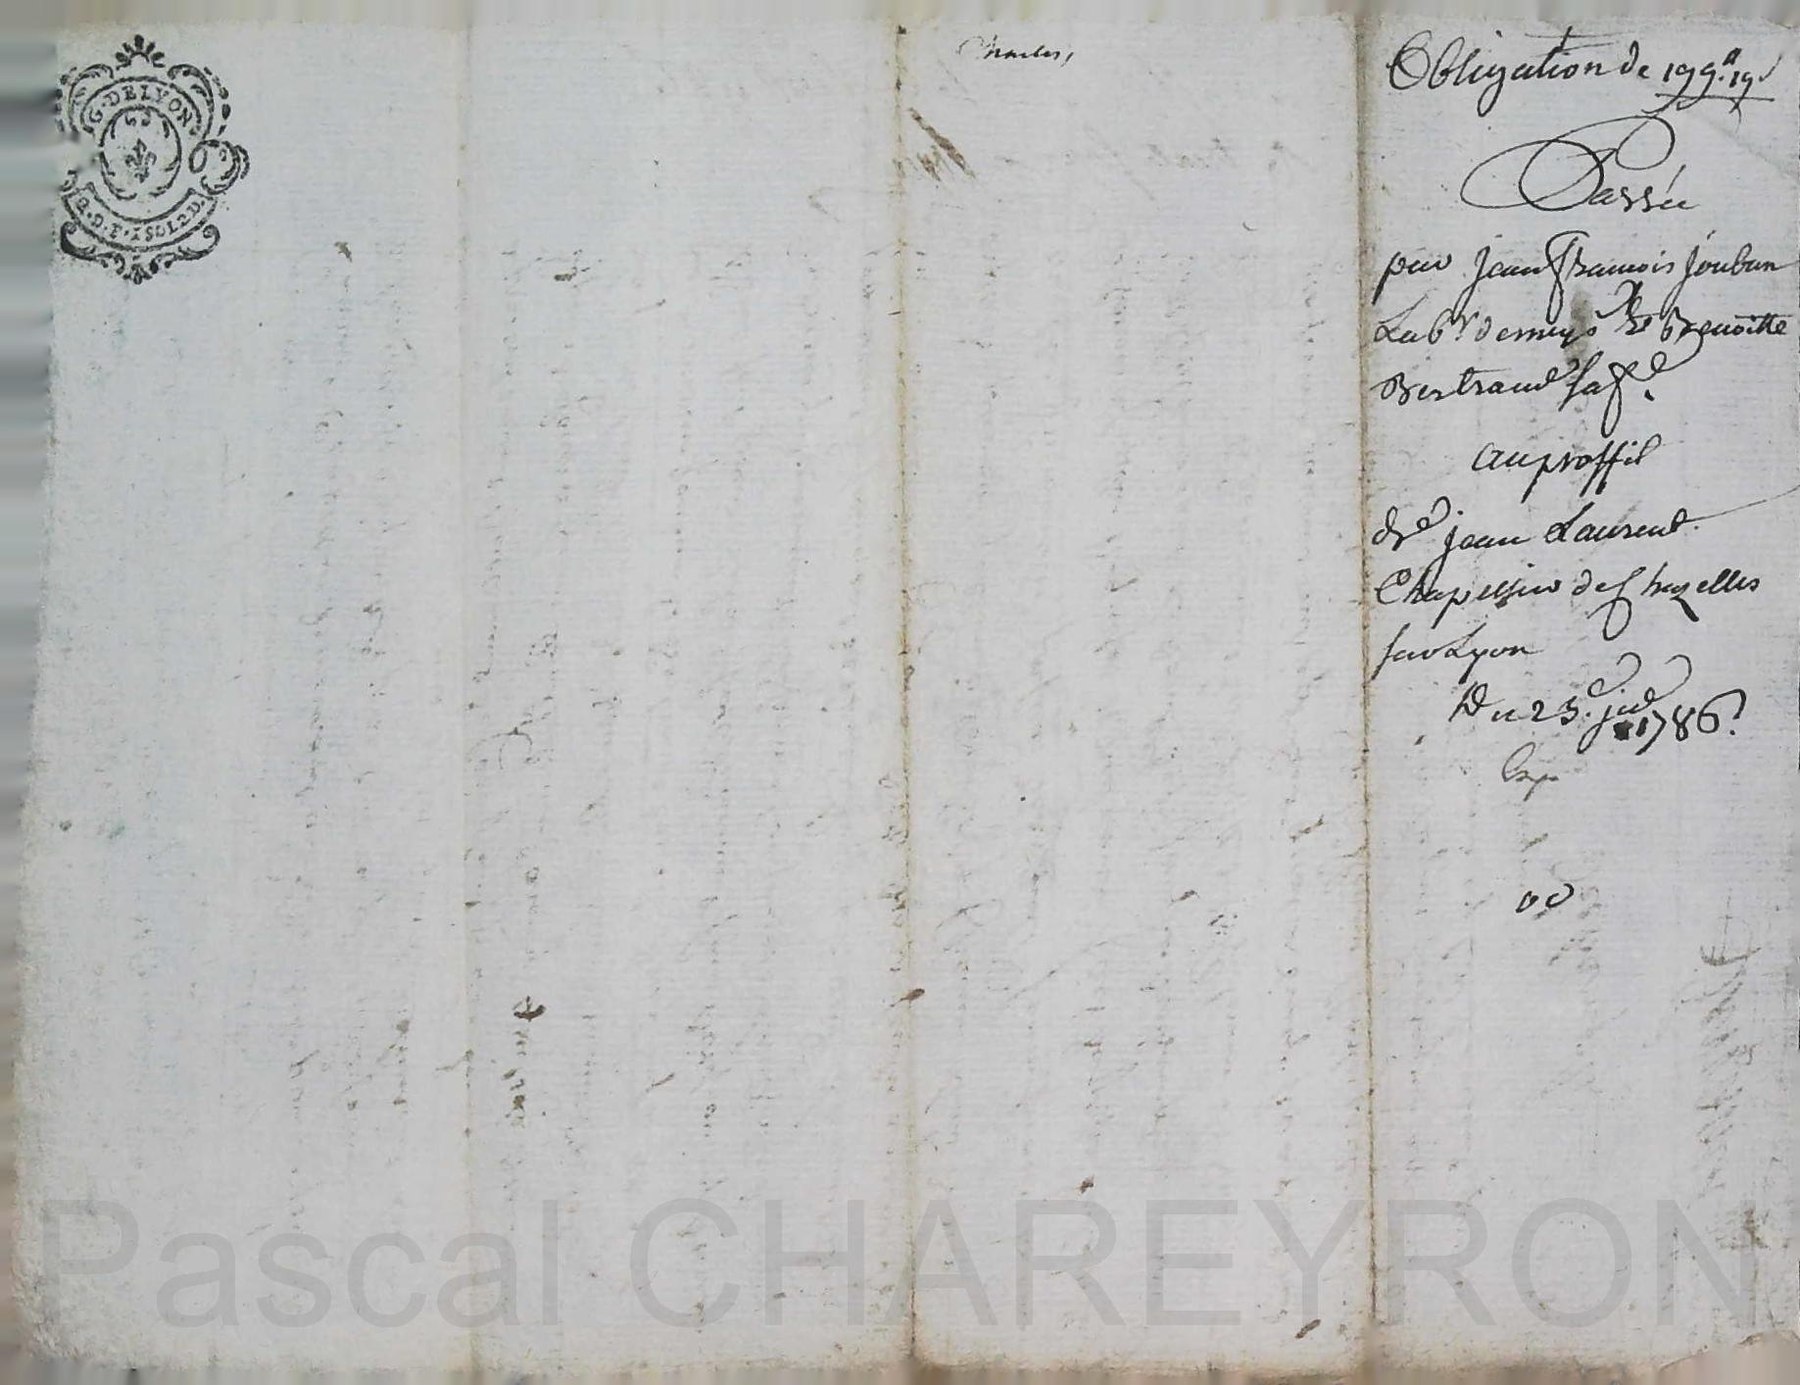 G. DE LYON
2. D. F. 1 SOL 2 D.
Obligation de 199.# 19.s
Passée
par Jean François Jouban
Labr de meys & Benoitte
Bertrand sa fe.
au proffit
de Sr jean Laurent
Chapellier de Chazelles
sur Lyon
Du 23e. jet 1786.
Exp
Pascal CHAREYRON